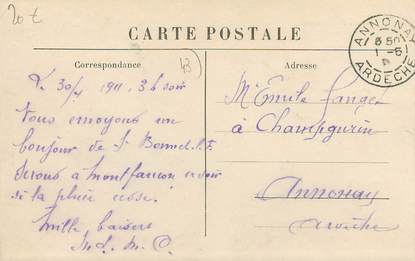 20 t
CARTE POSTALE
ANNONAY
6 50
1 -5
ARDECHE
Correspondance
13
Adresse
Le 30/4 1911, 3 h soir
Vous envoyons un
bonjour de St Bonnet. S. F.
Serons à Montfaucon ce soir
si la pluie cesse.
Mille baisers
M. L. M. C.
Mr Emile
à Champgurin
Annonay
Ardèche